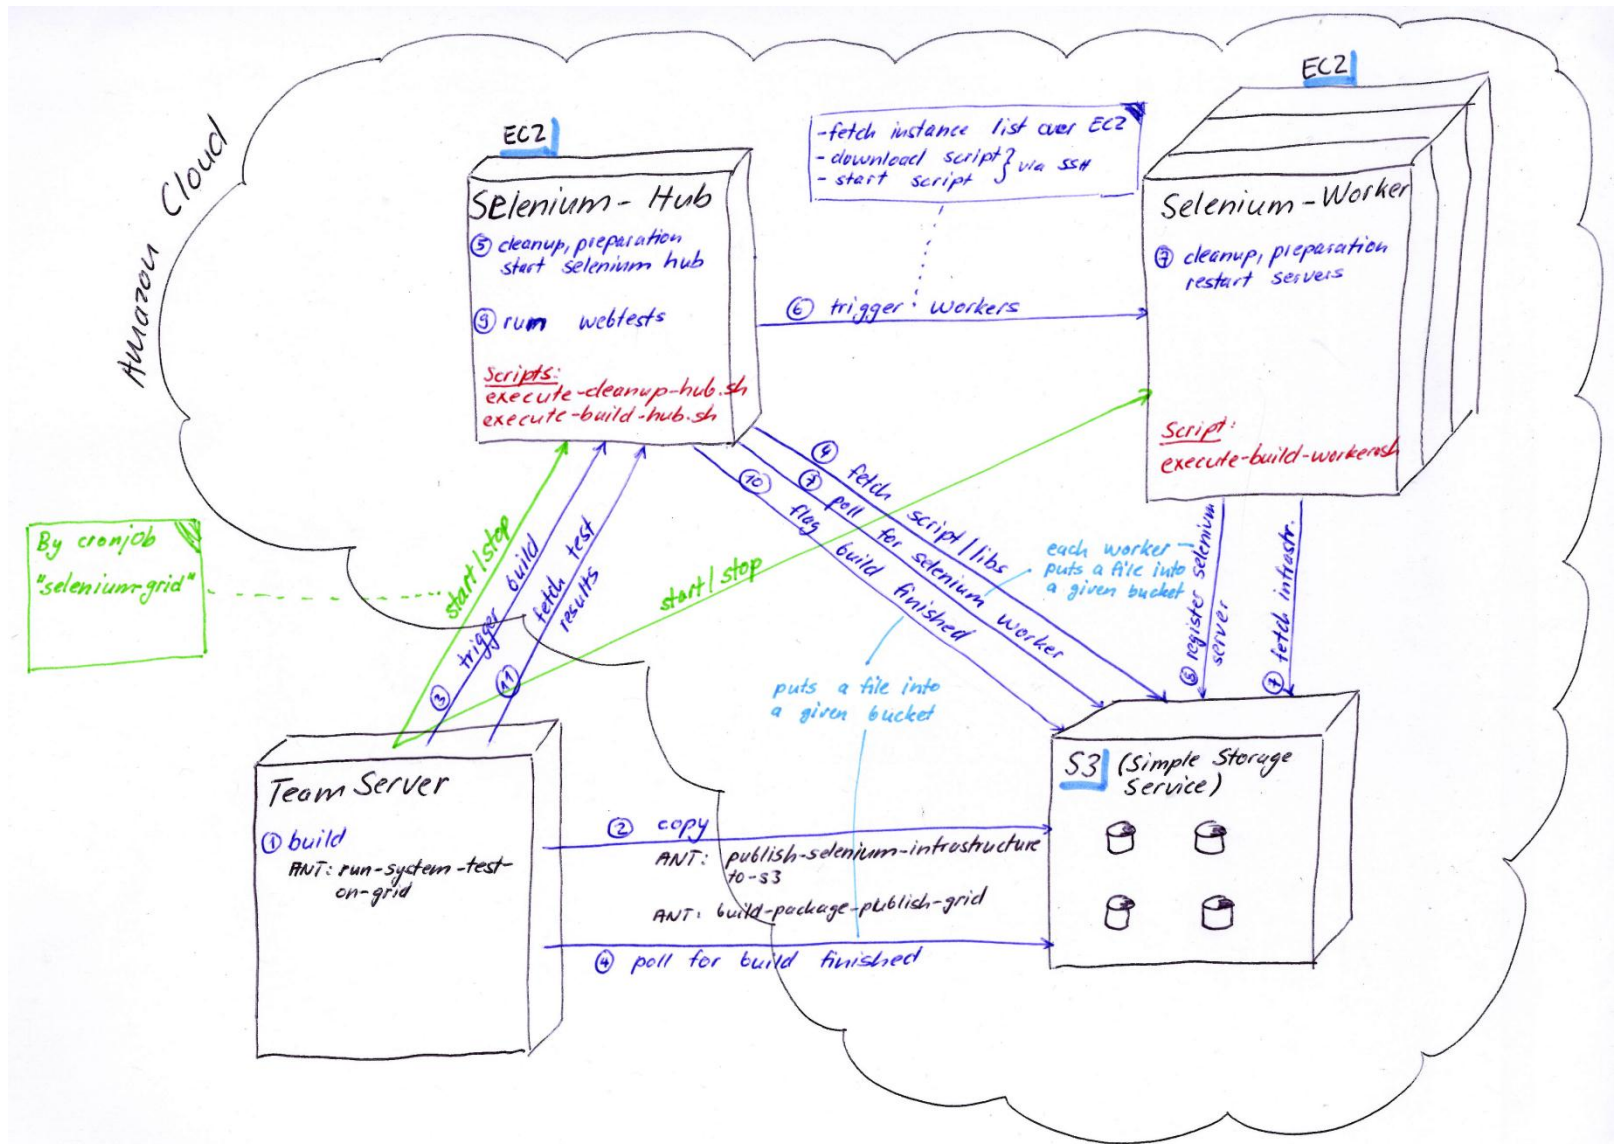 Amazon Cloud
EC2
Selenium-Hub
⑤ cleanup, preparation
start selenium hub
⑨ run webtests
Scripts:
execute-cleanup-hub.sh
execute-build-hub.sh
-fetch instance list over EC2
-download script } via SSH
- start script
⑥ trigger workers
EC2
Selenium-Worker
⑦ cleanup, preparation
restart servers
Script:
execute-build-worker.sh
By cronjob
"selenium-grid"
start/stop
③ trigger build
⑪ fetch test
results
start/stop
④ fetch script/libs
⑦ poll for selenium worker
⑩ flag build finished
each worker
puts a file into
a given bucket
⑧ register selenium
server
⑦ fetch infrastr.
puts a file into
a given bucket
Team Server
① build
ANT: run-system-test-
on-grid
② copy
ANT: publish-selenium-infrastructure
to-s3
ANT: build-package-publish-grid
④ poll for build finished
S3 (Simple Storage
Service)